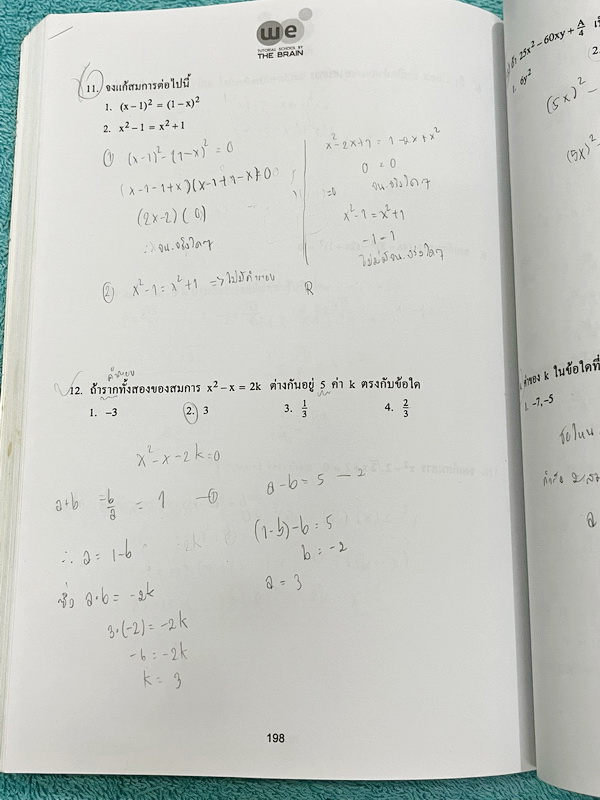 we
TUTORIAL SCHOOL BY
THE BRAIN
11. จงแก้สมการต่อไปนี้
1. (x – 1)² = (1 – x)²
2. x² – 1 = x² + 1
① (x-1)² - (1-x)² = 0
(x-1-1+x)(x-1+1-x) = 0
(2x-2)(0)
∴ จน.จริงใดๆ
② x²-1 = x²+1 => ไม่มีคำตอบ
x²-2x+1 = 1-2x+x²
0 = 0
จน.จริงใดๆ
x²-1 = x²+1
-1 = 1
R
คำตอบ
12. ถ้ารากทั้งสองของสมการ x² – x = 2k ต่างกันอยู่ 5 ค่า k ตรงกับข้อใด
1. –3 2. 3 3. 1/3 4. 2/3
x²-x-2k=0
a+b = -b/a = 1 —①
∴ a = 1-b
ซึ่ง a·b = -2k
3·(-2) = -2k
-6 = -2k
k = 3
a-b = 5 — 2
(1-b)-b = 5
b = -2
a = 3
198
25x² – 60xy + A/4
1. 6y²
2.
(5x)² -
(5x)² -
ค่าของ k ในข้อใดที่
1. –7, –5
a